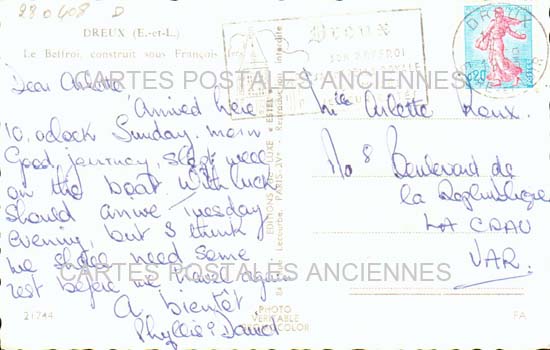 280408 D
DREUX (E.-et-L.)
Le Beffroi, construit sous François Ier
Dear Arlette
Arrived here
10, oclock Sunday. morn
Good journey, slept well
on the boat With luck
should arrive Tuesday
evening, but I think
we shall need some
rest before we travel again
A bientôt
Phyllis & David
21744
EDITIONS DE LUXE "ESTEL"
Lecourbe, PARIS-XV
PHOTO
VERITABLE
COLOR
FA
DREUX
SON BEFFROI
DREUX
0,20
Mlle Arlette Roux.
No 8 Boulevard de
la Republique
LA CRAU
VAR.
CARTES POSTALES ANCIENNES
CARTES POSTALES ANCIENNES